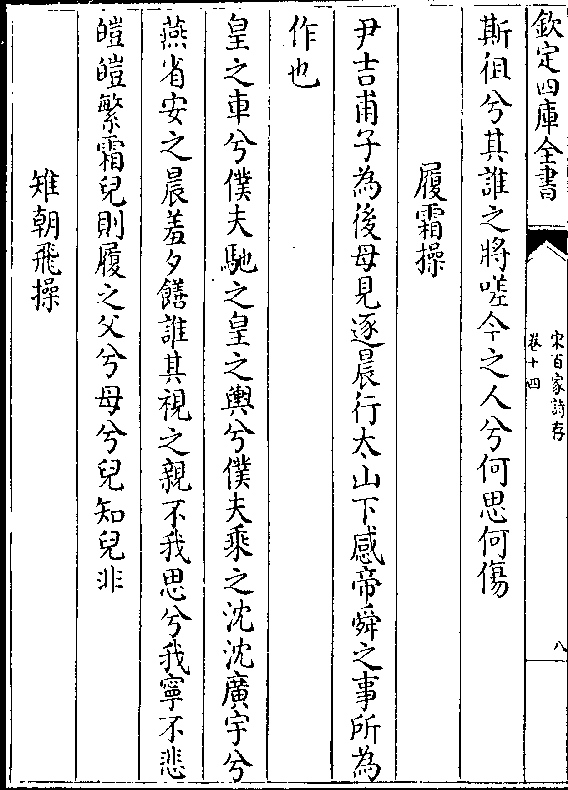 欽定四庫全書
宋百家詩存
卷十四
八
斯徂兮其誰之將嗟今之人兮何思何傷
履霜操
尹吉甫子為後母見逐晨行太山下感帝舜之事所為
作也
皇之車兮僕夫馳之皇之輿兮僕夫乘之沈沈廣宇兮
燕省安之晨羞夕饍誰其視之親不我思兮我寧不悲
皚皚繁霜兒則履之父兮母兮兒知兒非
雉朝飛操